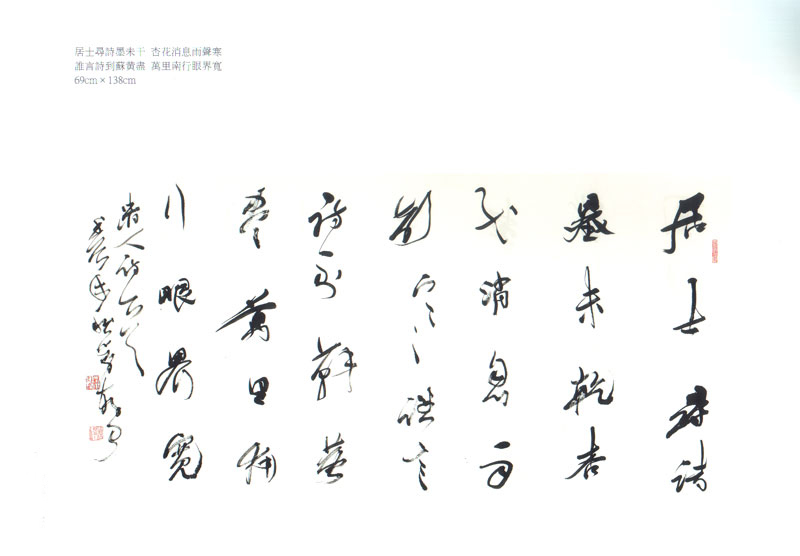 居士尋詩墨未干 杏花消息雨聲寒
誰言詩到蘇黄盡 萬里南行眼界寬
69cm×138cm
居士尋詩
墨未乾杏
花消息雨
聲寒誰言
詩到蘇黄
盡萬里南
行眼界寬